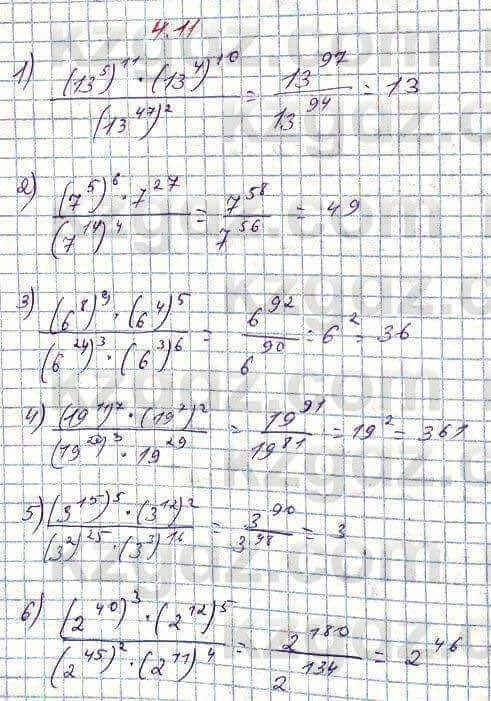 4.11
1) ((13^5)^11 · (13^4)^10) / (13^47)^2 = 13^97 / 13^94 = 13
2) ((7^5)^6 · 7^27) / (7^14)^4 = 7^58 / 7^56 = 49
3) ((6^8)^9 · (6^4)^5) / ((6^24)^3 · (6^3)^6) = 6^92 / 6^90 = 6^2 = 36
4) ((19^11)^7 · (19^7)^2) / ((19^20)^3 · 19^29) = 19^91 / 19^81 = 19^2 = 361
5) ((3^15)^5 · (3^12)^2) / ((3^2)^25 · (3^3)^16) = 3^90 / 3^98 = 3
6) ((2^40)^3 · (2^12)^5) / ((2^45)^2 · (2^11)^4) = 2^180 / 2^134 = 2^46